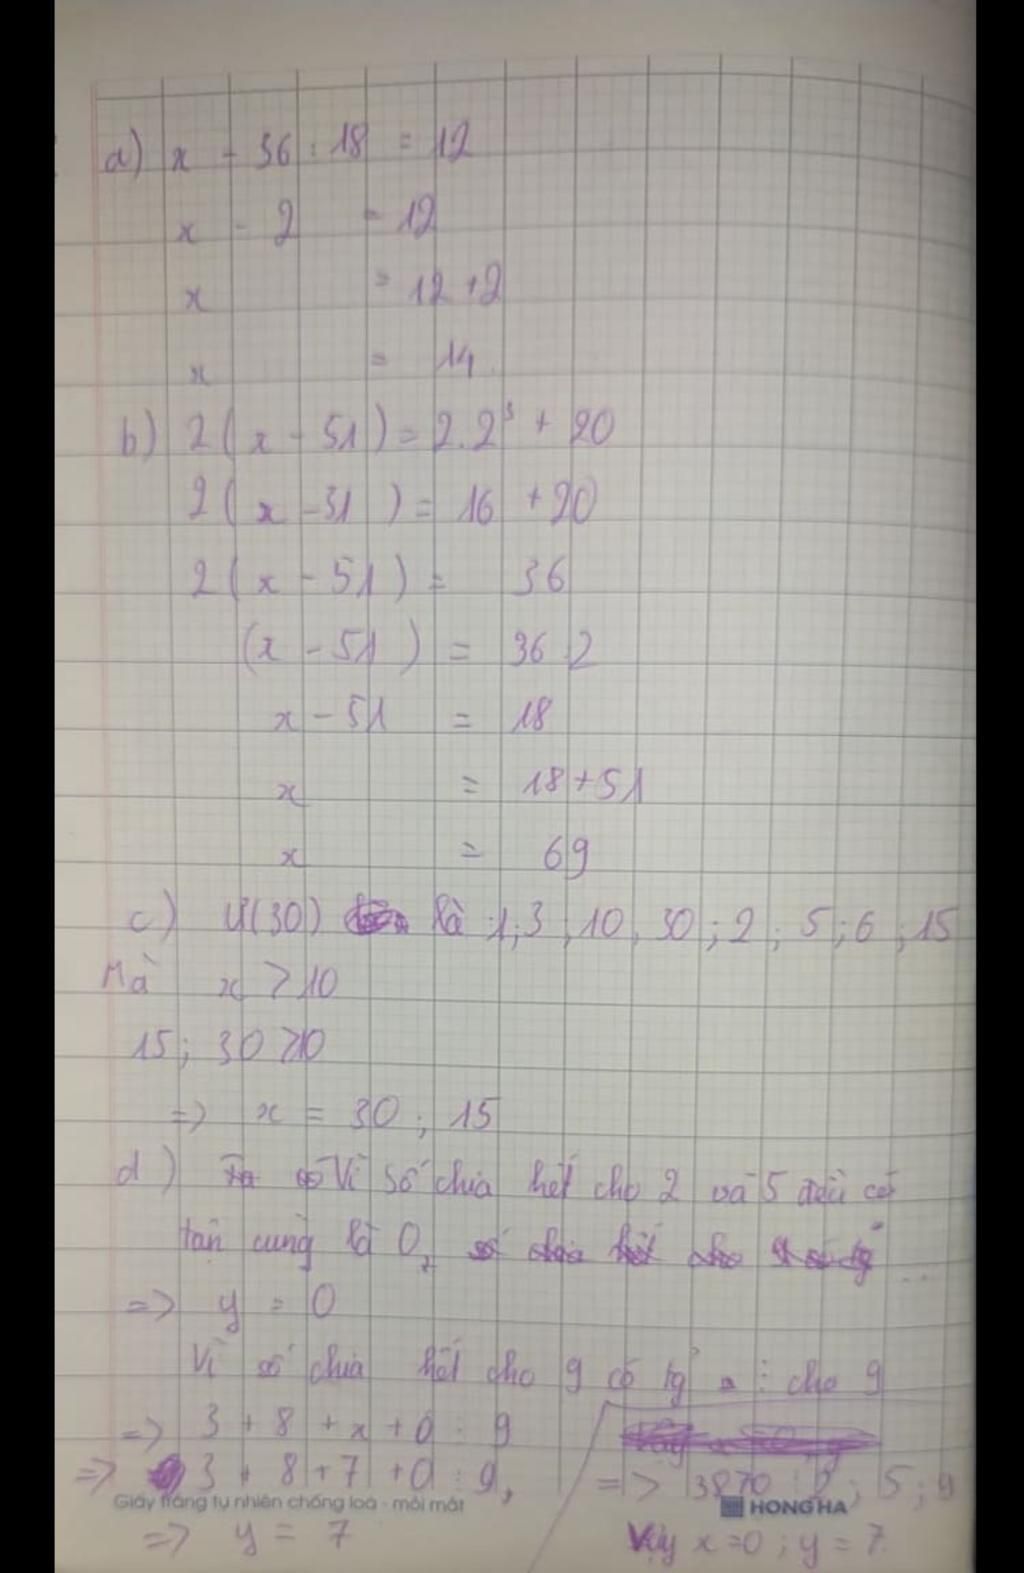 a) x - 36 : 18 = 12
x - 2 = 12
x = 12 + 2
x = 14
b) 2(x - 51) = 2.2³ + 20
2(x - 51) = 16 + 20
2(x - 51) = 36
(x - 51) = 36 2
x - 51 = 18
x = 18 + 51
x = 69
c) Ư(30) là 1; 3; 10; 30; 2; 5; 6; 15
Mà x > 10
15; 30 > 10
=> x = 30; 15
d) Vì số chia hết cho 2 và 5 đều có
tận cùng là 0,
=> y = 0
Vì số chia hết cho 9 có tg̉ ⋮ cho 9
=> 3 + 8 + x + 0 ⋮ 9
=> 3 + 8 + 7 + 0 ⋮ 9,
=> y = 7
=> 3870 ⋮ 2; 5; 9
Vậy x = 0; y = 7
Giấy trắng tự nhiên chống loá - mỏi mắt
HONG HA